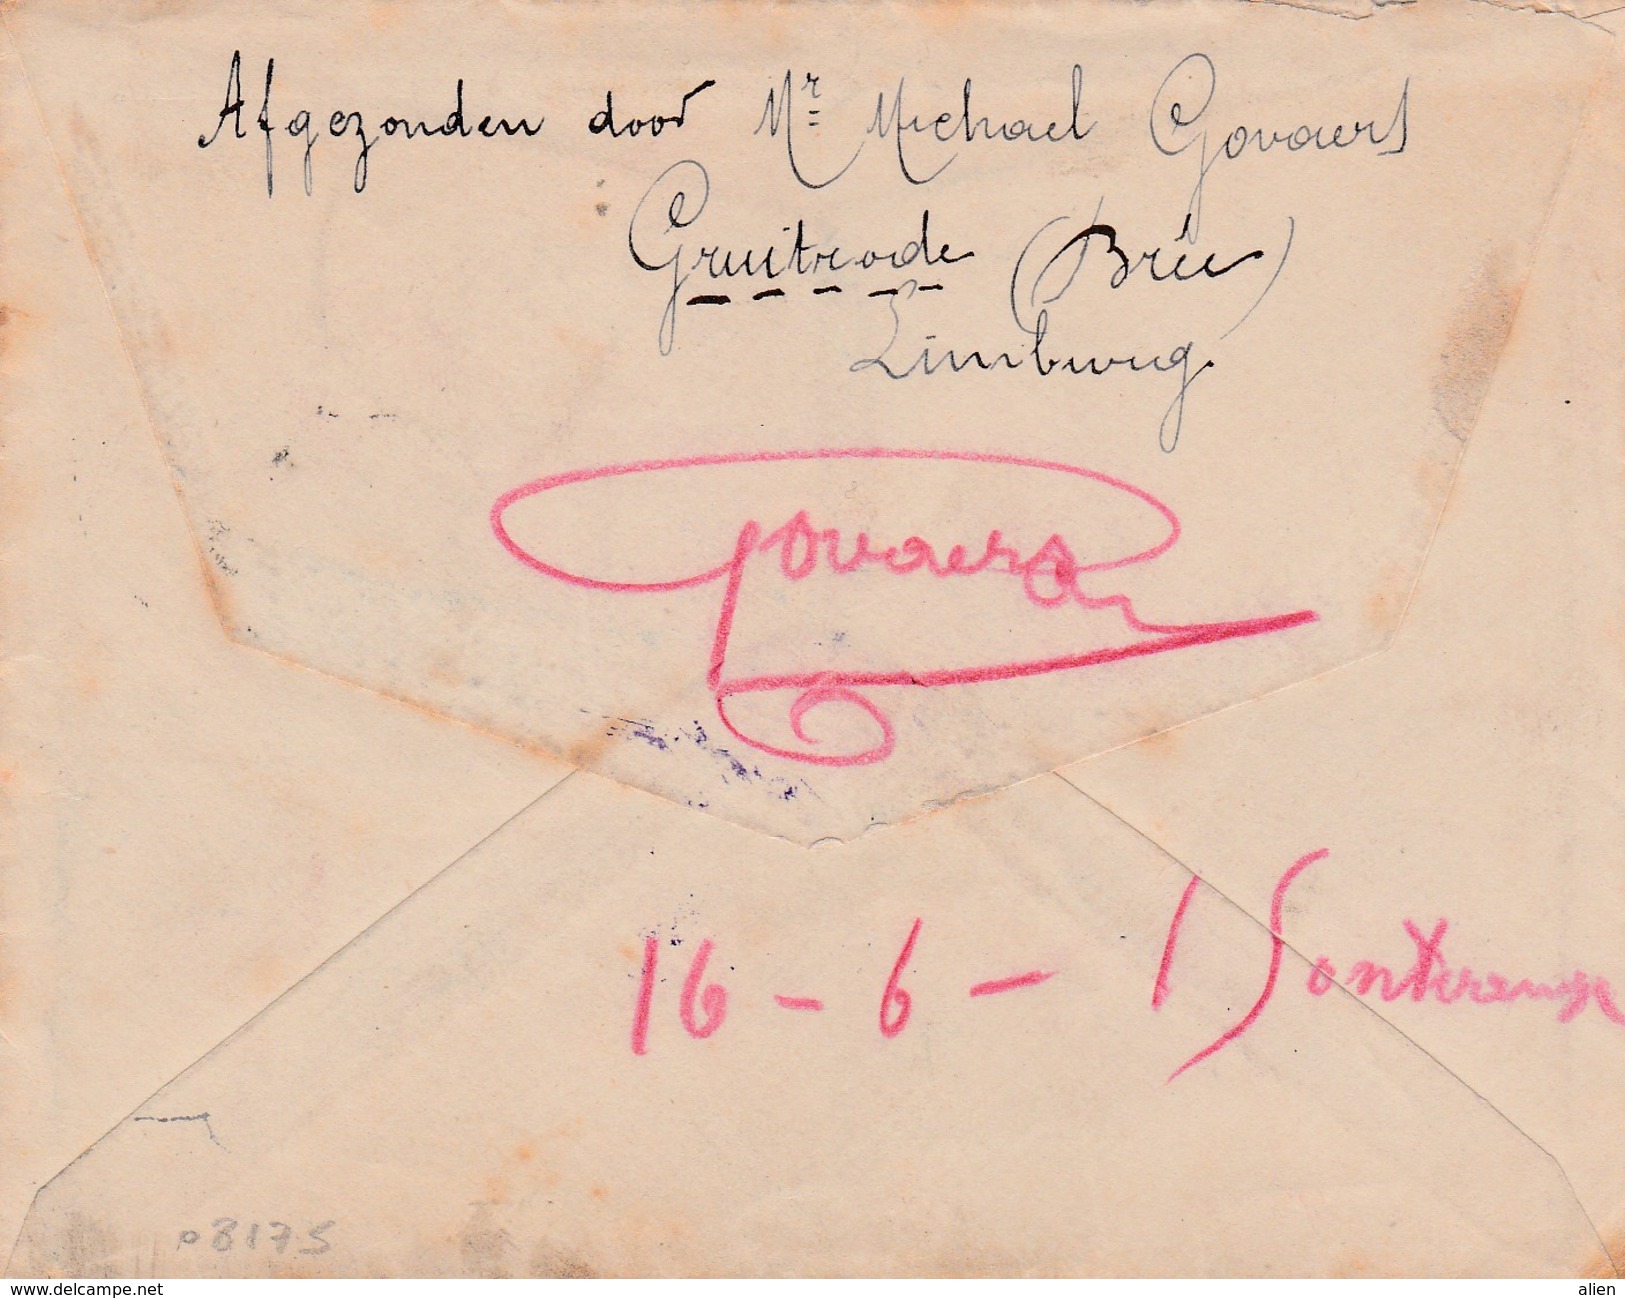 Afgezonden door Mr Michael Govaers
Gruitrode (Brée)
Limburg.
Govaers
16 - 6 -
08175
delcampe.net
alien